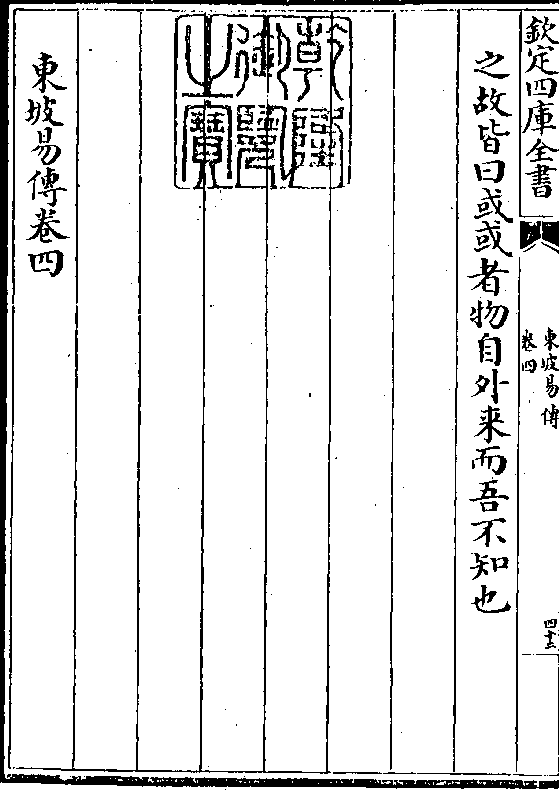 欽定四庫全書
東坡易傳
卷四
四十三
之故皆曰或或者物自外来而吾不知也
乾隆
御覽
之寶
東坡易傳卷四